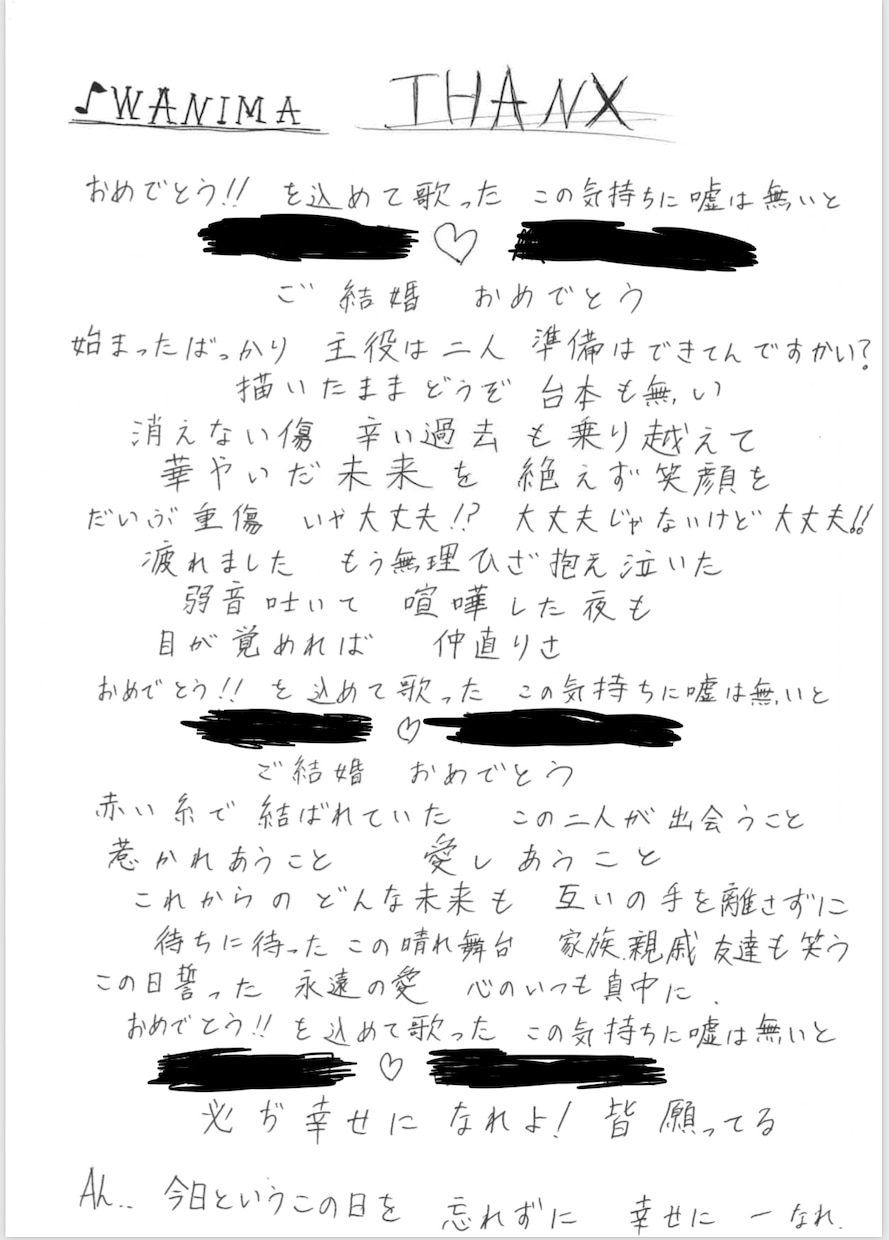 ♪WANIMA THANX
おめでとう!! を込めて歌った この気持ちに嘘は無いと
♡
ご結婚 おめでとう
始まったばっかり 主役は二人 準備はできてんですかい?
描いたままどうぞ 台本も無い
消えない傷 辛い過去も乗り越えて
華やいだ未来を 絶えず笑顔を
だいぶ重傷 いや大丈夫!? 大丈夫じゃないけど大丈夫!!
疲れました もう無理ひざ抱え泣いた
弱音吐いて 喧嘩した夜も
目が覚めれば 仲直りさ
おめでとう!! を込めて歌った この気持ちに嘘は無いと
♡
ご結婚 おめでとう
赤い糸で結ばれていた この二人が出会うこと
惹かれあうこと 愛しあうこと
これからのどんな未来も 互いの手を離さずに
待ちに待ったこの晴れ舞台 家族.親戚 友達も笑う
この日誓った 永遠の愛 心のいつも真中に.
おめでとう!! を込めて歌った この気持ちに嘘は無いと
♡
必ず幸せになれよ! 皆願ってる
Ah.. 今日というこの日を 忘れずに 幸せにーなれ.